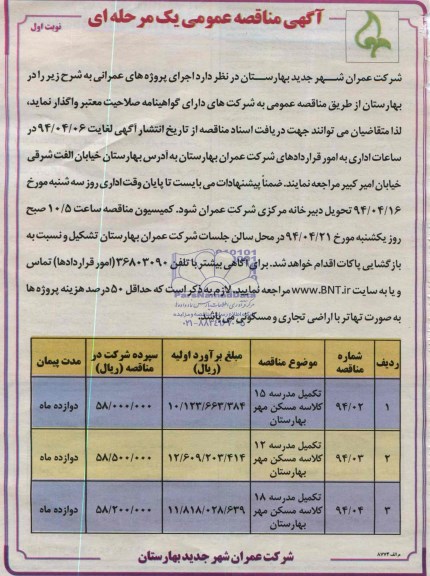 آگهی مناقصه عمومی یک مرحله ای
نوبت اول
شرکت عمران شهر جدید بهارستان در نظر دارد اجرای پروژه های عمرانی به شرح زیر را در
بهارستان از طریق مناقصه عمومی به شرکت های دارای گواهینامه صلاحیت معتبر واگذار نماید،
لذا متقاضیان می توانند جهت دریافت اسناد مناقصه از تاریخ انتشار آگهی لغایت ۹۴/۰۴/۰۶ در
ساعات اداری به امور قراردادهای شرکت عمران بهارستان به آدرس بهارستان خیابان الفت شرقی
خیابان امیر کبیر مراجعه نمایند. ضمناً پیشنهادات می بایست تا پایان وقت اداری روز سه شنبه مورخ
۹۴/۰۴/۱۶ تحویل دبیرخانه مرکزی شرکت عمران شود. کمیسیون مناقصه ساعت ۱۰/۵ صبح
روز یکشنبه مورخ ۹۴/۰۴/۲۱ در محل سالن جلسات شرکت عمران بهارستان تشکیل و نسبت به
بازگشایی پاکات اقدام خواهد شد. برای آگاهی بیشتر با تلفن ۳۶۸۰۳۰۹۰ (امور قراردادها) تماس
و یا به سایت www.BNT.ir مراجعه نمایید. لازم به ذکر است که حداقل ۵۰ درصد هزینه پروژه ها
به صورت تهاتر با اراضی تجاری و مسکونی می باشد.
ردیف شماره مناقصه موضوع مناقصه مبلغ برآورد اولیه (ریال) سپرده شرکت در مناقصه (ریال) مدت پیمان
۱ ۹۴/۰۲ تکمیل مدرسه ۱۵ کلاسه مسکن مهر بهارستان ۱۰/۱۲۳/۶۶۳/۳۸۴ ۵۸/۰۰۰/۰۰۰ دوازده ماه
۲ ۹۴/۰۳ تکمیل مدرسه ۱۲ کلاسه مسکن مهر بهارستان ۱۲/۶۰۹/۲۰۳/۴۱۴ ۵۸/۵۰۰/۰۰۰ دوازده ماه
۳ ۹۴/۰۴ تکمیل مدرسه ۱۸ کلاسه مسکن مهر بهارستان ۱۱/۸۱۸/۰۲۸/۶۳۹ ۵۸/۲۰۰/۰۰۰ دوازده ماه
شرکت عمران شهر جدید بهارستان
م الف ۸۷۷۴